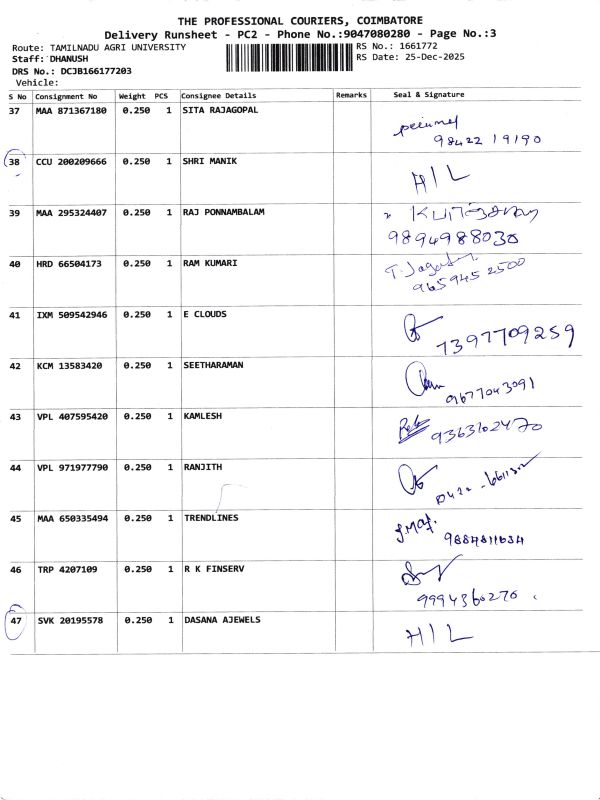 THE PROFESSIONAL COURIERS, COIMBATORE
Delivery Runsheet - PC2 - Phone No.:9047080280 - Page No.:3
Route: TAMILNADU AGRI UNIVERSITY RS No.: 1661772
Staff: DHANUSH RS Date: 25-Dec-2025
DRS No.: DCJB166177203
Vehicle:
S No Consignment No Weight PCS Consignee Details Remarks Seal & Signature
37 MAA 871367180 0.250 1 SITA RAJAGOPAL
98422 19190
38 CCU 200209666 0.250 1 SHRI MANIK H/L
39 MAA 295324407 0.250 1 RAJ PONNAMBALAM
9894988030
40 HRD 66504173 0.250 1 RAM KUMARI
965945 2500
41 IXM 509542946 0.250 1 E CLOUDS
7397709259
42 KCM 13583420 0.250 1 SEETHARAMAN
9677043091
43 VPL 407595420 0.250 1 KAMLESH
9363102470
44 VPL 971977790 0.250 1 RANJITH
45 MAA 650335494 0.250 1 TRENDLINES
46 TRP 4207109 0.250 1 R K FINSERV
9994360270
47 SVK 20195578 0.250 1 DASANA AJEWELS H/L